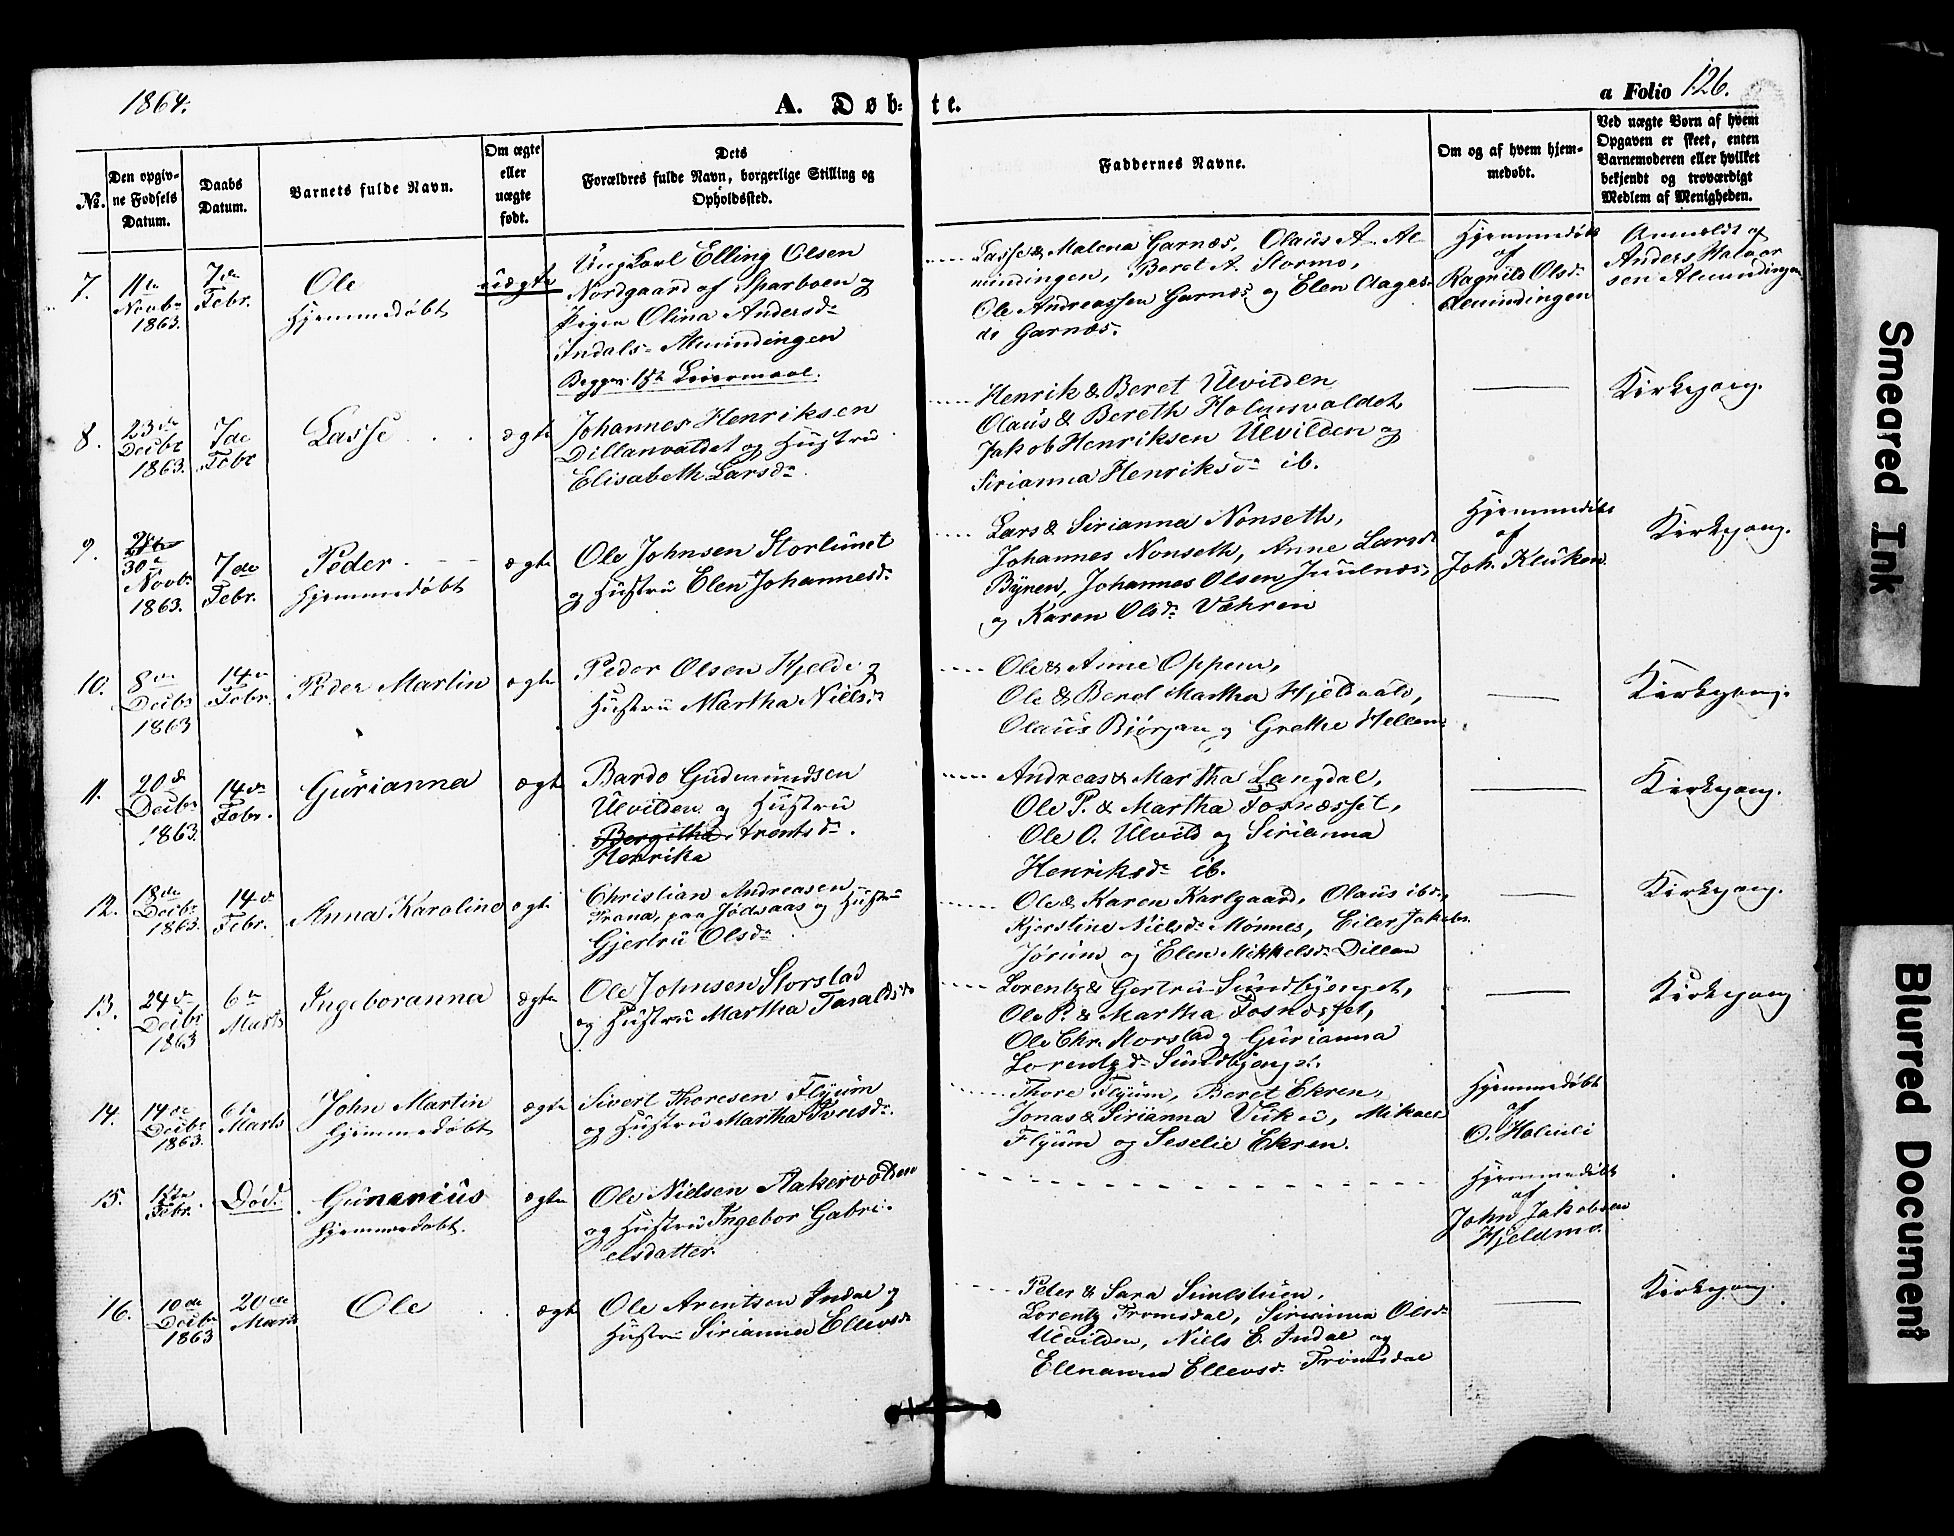 1864.
A. Døb-
te.
a Folio 126.
№.
Den opgiv-
ne Fødsels
Datum.
Daabs
Datum.
Barnets fulde Navn.
Om ægte
eller
uægte
født.
Dets
Forældres fulde Navn, borgerlige Stilling og
Opholdssted.
Faddernes Navne.
Om og af hvem hjem-
medøbt.
Ved uægte Børn af hvem
Opgaven er skeet, enten
Barnemoderen eller hvilket
bekjendt og troværdigt
Medlem af Menigheden.
7.
11te
Novbr
1863.
7de
Febr.
Ole
Hjemmedøbt
uægte
Ungkarl Elling Olsen
Nordgaard af Sparboen og
Pigen Olina Andersdr
Indals-Almindingen
Begges 1ste Leiermaal.
Lasse & Malena Garnæs, Olaus A. Al-
mindingen, Beret A. Stormo,
Ole Andreassen Garnæs og Elen Aages-
dr Garnæs.
Hjemmedøbt
af
Ragnild Olsdr
Almindingen
Anmeldt af
Anders Halvor
sen Almindingen
8.
23de
Decbr
1863.
7de
Febr
Lasse
ægte
Johannes Henriksen
Dillanvaldet og Hustru
Elisabeth Larsdr
Henrik & Beret Ulvilden
Olaus & Bereth Holmsvaldet
Jakob Henriksen Ulvilden og
Sirianna Henriksdr ib.
Kirkegang.
9.
30te
Novbr
1863.
7de
Febr.
Peder
Hjemmedøbt
ægte
Ole Johnsen Storlunet
og Hustru Elen Johannesdr
Lars & Sirianna Nonseth,
Johannes Nonseth, Anne Larsdr
Bynen, Johannes Olsen Juulnæs,
og Karen Olsdr Væhren
Hjemmedøbt
af
Joh. Kluken
Kirkegang.
10.
8de
Decbr
1863
14de
Febr.
Peder Martin
ægte
Peder Olsen Hjelde og
Hustru Martha Nielsdr
Ole & Anne Oppem,
Ole & Beret Martha Hjeldvald,
Olaus Bjørgan og Grethe Hellem
Kirkegang.
11.
20de
Decbr
1863.
14de
Febr.
Gurianna
ægte
Bardo Gudmundsen
Ulvilden og Hustru
Bergitha Arentsdr.
Henrika
Andreas & Martha Langdal,
Ole P. & Martha Fosnæsset,
Ole O. Ulvild og Sirianna
Henriksdr ib.
Kirkegang.
12.
18de
Decbr
1863.
14de
Febr.
Anna Karoline
ægte
Christian Andreasen
Trana, paa Jødsaas og Hustru
Gjertru Olsdr
Ole & Karen Karlgaard, Olaus ibd.,
Kjerstine Nielsdr Mønnes, Eiler Jakobs.
Jørum og Elen Mikkelsdr Dillan
Kirkegang.
13.
24de
Decbr
1863
6te
Marts
Ingeboranna
ægte
Ole Johnsen Storstad
og Hustru Martha Taraldsdr
Lorentz & Gertru Sundbyenget,
Ole P. & Martha Fosnæsset,
Ole Chr. Storstad og Gurianna
Lorentzdr Sundbyenget.
Kirkegang
14.
14de
Decbr
1863.
6te
Marts
John Martin
Hjemmedøbt
ægte
Sivert Thoresen Flyum
og Hustru Martha Iversdr.
Thore Flyum, Beret Ekren,
Jonas & Sirianna Vuku, Mikael
Flyum og Seselie Ekren.
Hjemmedøbt
af
O. Holmli
15.
15de
Febr.
Død.
Gunerius
Hjemmedøbt.
ægte
Ole Nielsen Aakervolden
og Hustru Ingebor Gabri-
elsdatter.
Hjemmedøbt
af
John Jakobsen
Hjeldmo.
16.
10de
Decbr
1863
20de
Marts
Ole
ægte
Ole Arentsen Indal og
Hustru Sirianna Ellevsdr
Peter & Sara Sundstuen,
Lorentz Tromsdal, Sirianna Olsdr
Ulvilden, Niels E. Indal og
Ellenanna Ellevsdr Tromsdal
Kirkegang.
Smeared Ink
Blurred Document